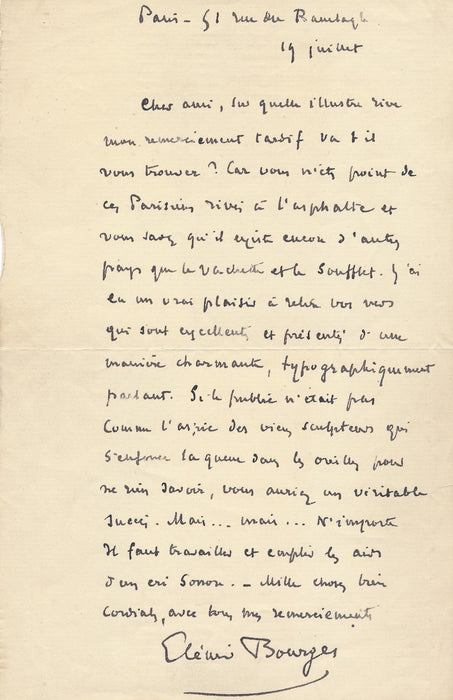 Paris – 51 rue du Ranelagh
19 juillet
Cher ami, sur quelle illustre rive
mon remerciement tardif va t il
vous trouver ? Car vous n'êtes point de
ces Parisiens rivés à l'asphalte et
vous savez qu'il existe encore d'autres
pays que le Vachette et le Soufflet. J'ai
eu un vrai plaisir à relire vos vers
qui sont excellents et présentés d'une
manière charmante, typographiquement
parlant. Si le public n'était pas
comme l'aspic des vieux sculpteurs qui
s'enfonce la queue dans les oreilles pour
ne rien savoir, vous auriez un véritable
succès. Mais... mais... N'importe
Il faut travailler et emplir les airs
d'un cri sonore. – Mille choses bien
cordiales, avec tous mes remerciements
Elémir Bourges